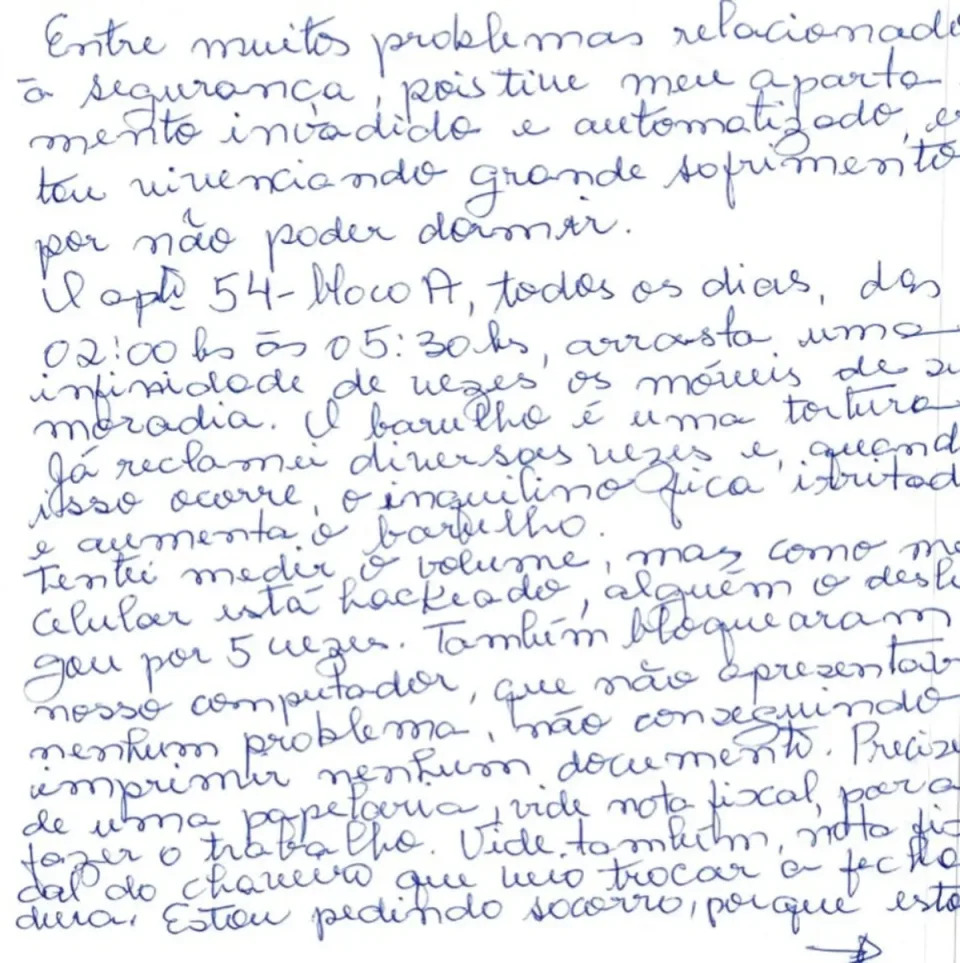 Entre muitos problemas relacionado
à segurança, pois tive meu aparta
mento invadido e automatizado, es
tou vivenciando grande sofrimento
por não poder dormir.
O aptº 54-bloco A, todos os dias, das
02:00 hs às 05:30 hs, arrasta uma
infinidade de vezes os móveis de su
moradia. O barulho é uma tortura
Já reclamei diversas vezes e, quand
isso ocorre, o inquilino fica irritad
e aumenta o barulho.
Tentei medir o volume, mas como me
celular está hackeado, alguém o desli
gou por 5 vezes. Também bloquearam
nosso computador, que não apresentav
nenhum problema, não conseguindo
imprimir nenhum documento. Precise
de uma papelaria, vide nota fiscal, para
fazer o trabalho. Vide, também, nota fis
cal do chaveiro que veio trocar a fecha
dura. Estou pedindo socorro, porque esto
→